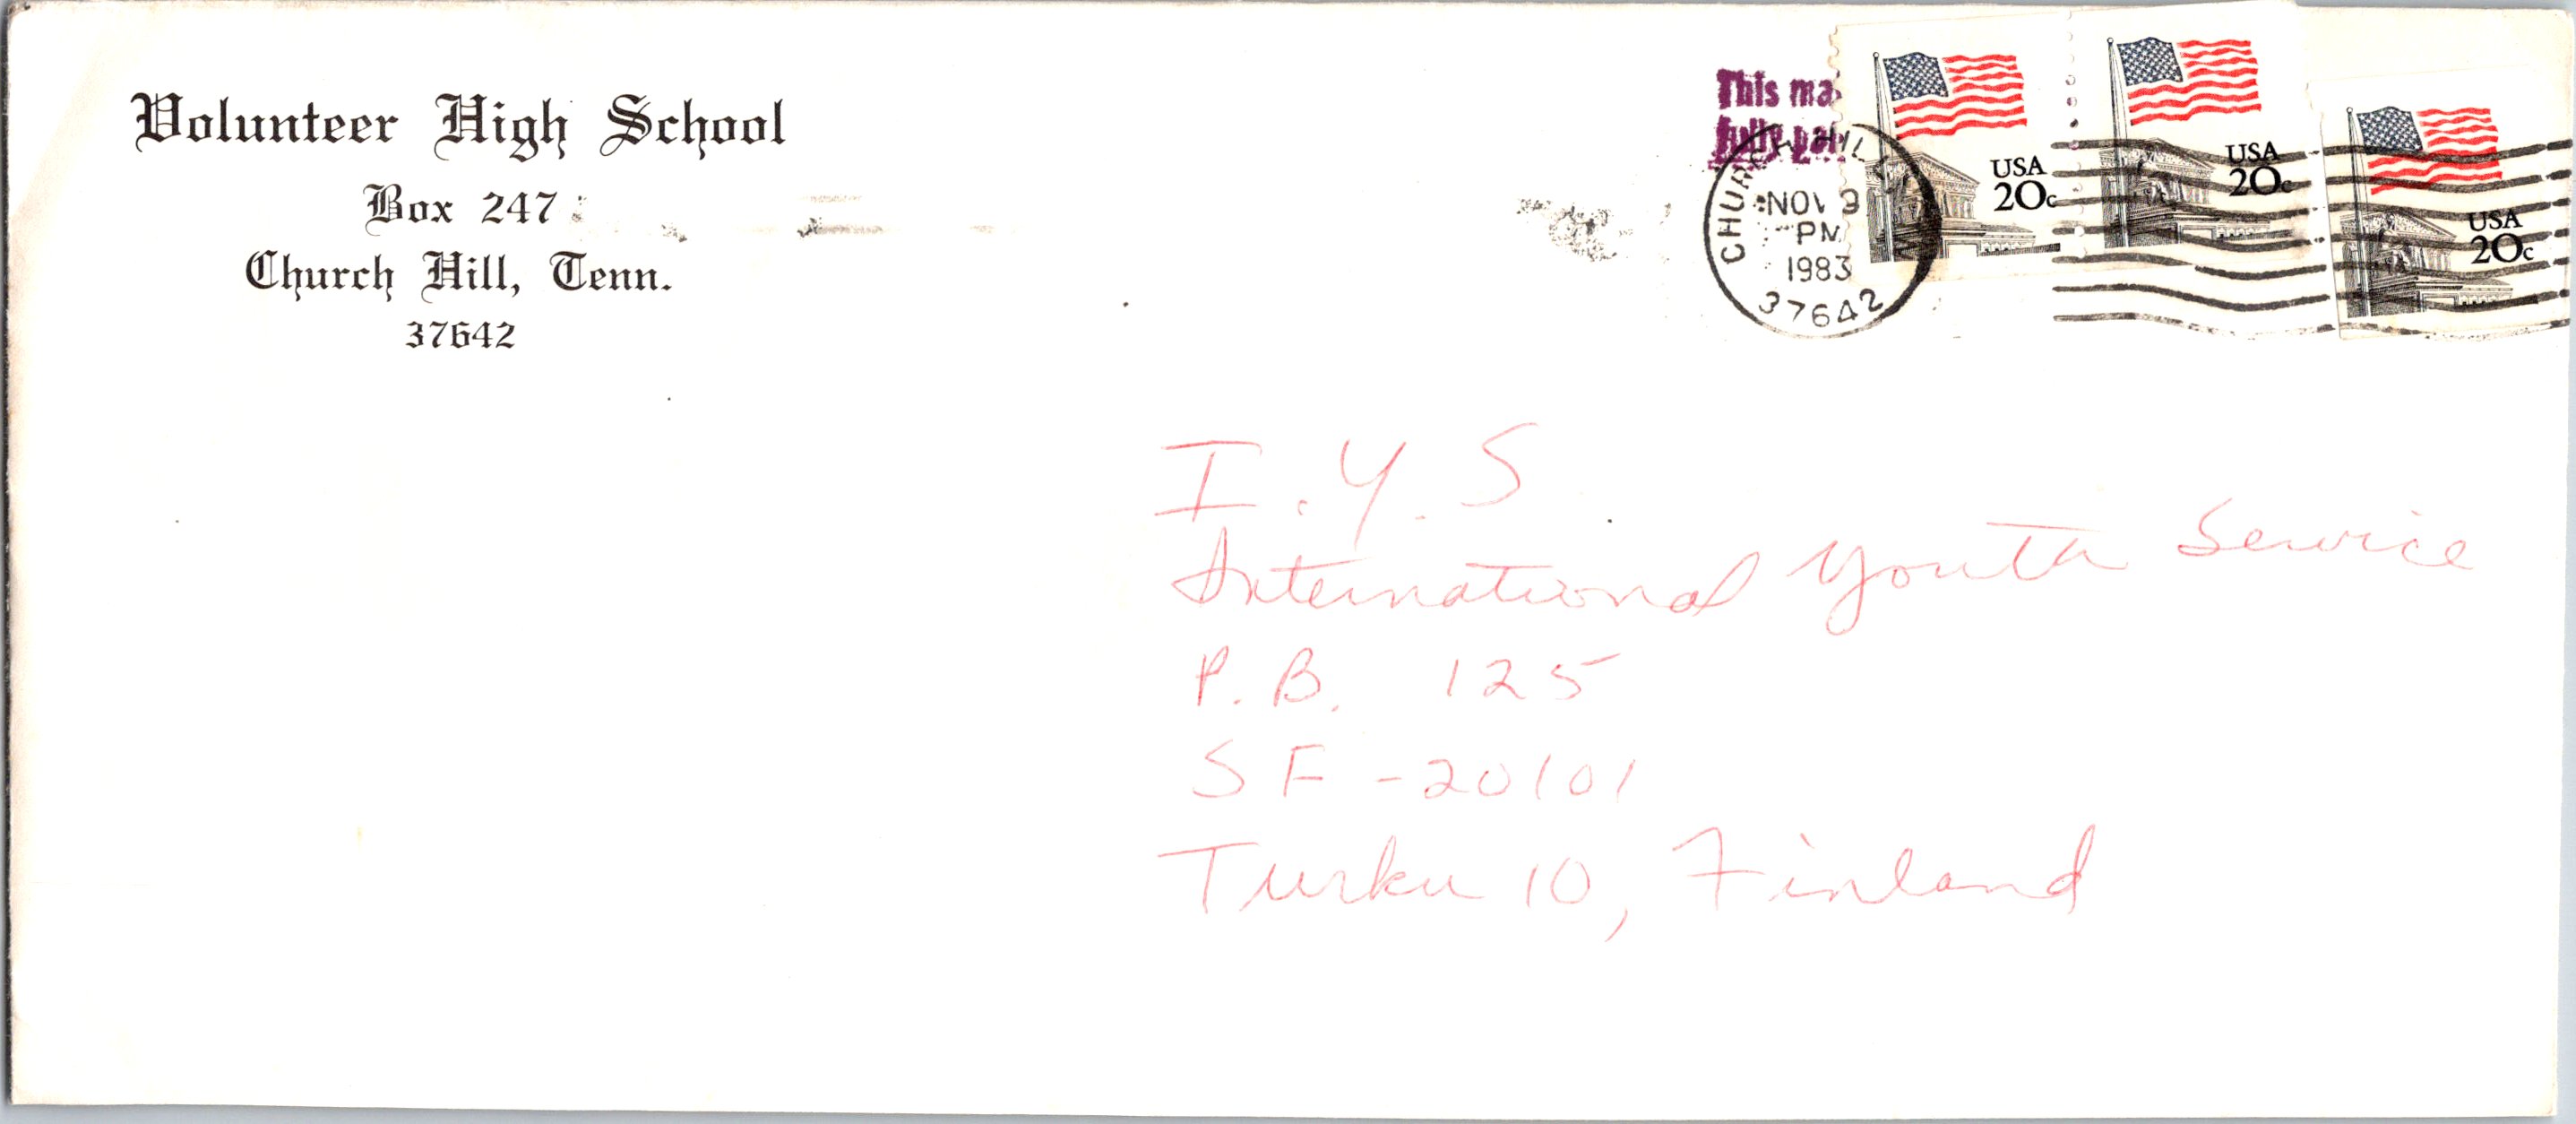 Volunteer High School
Box 247
Church Hill, Tenn.
37642
This ma
fully pai
CHURCH HILL
NOV 9
PM
1983
37642
USA
20c
USA
20c
USA
20c
I.Y.S.
International Youth Service
P.B. 125
SF-20101
Turku 10, Finland